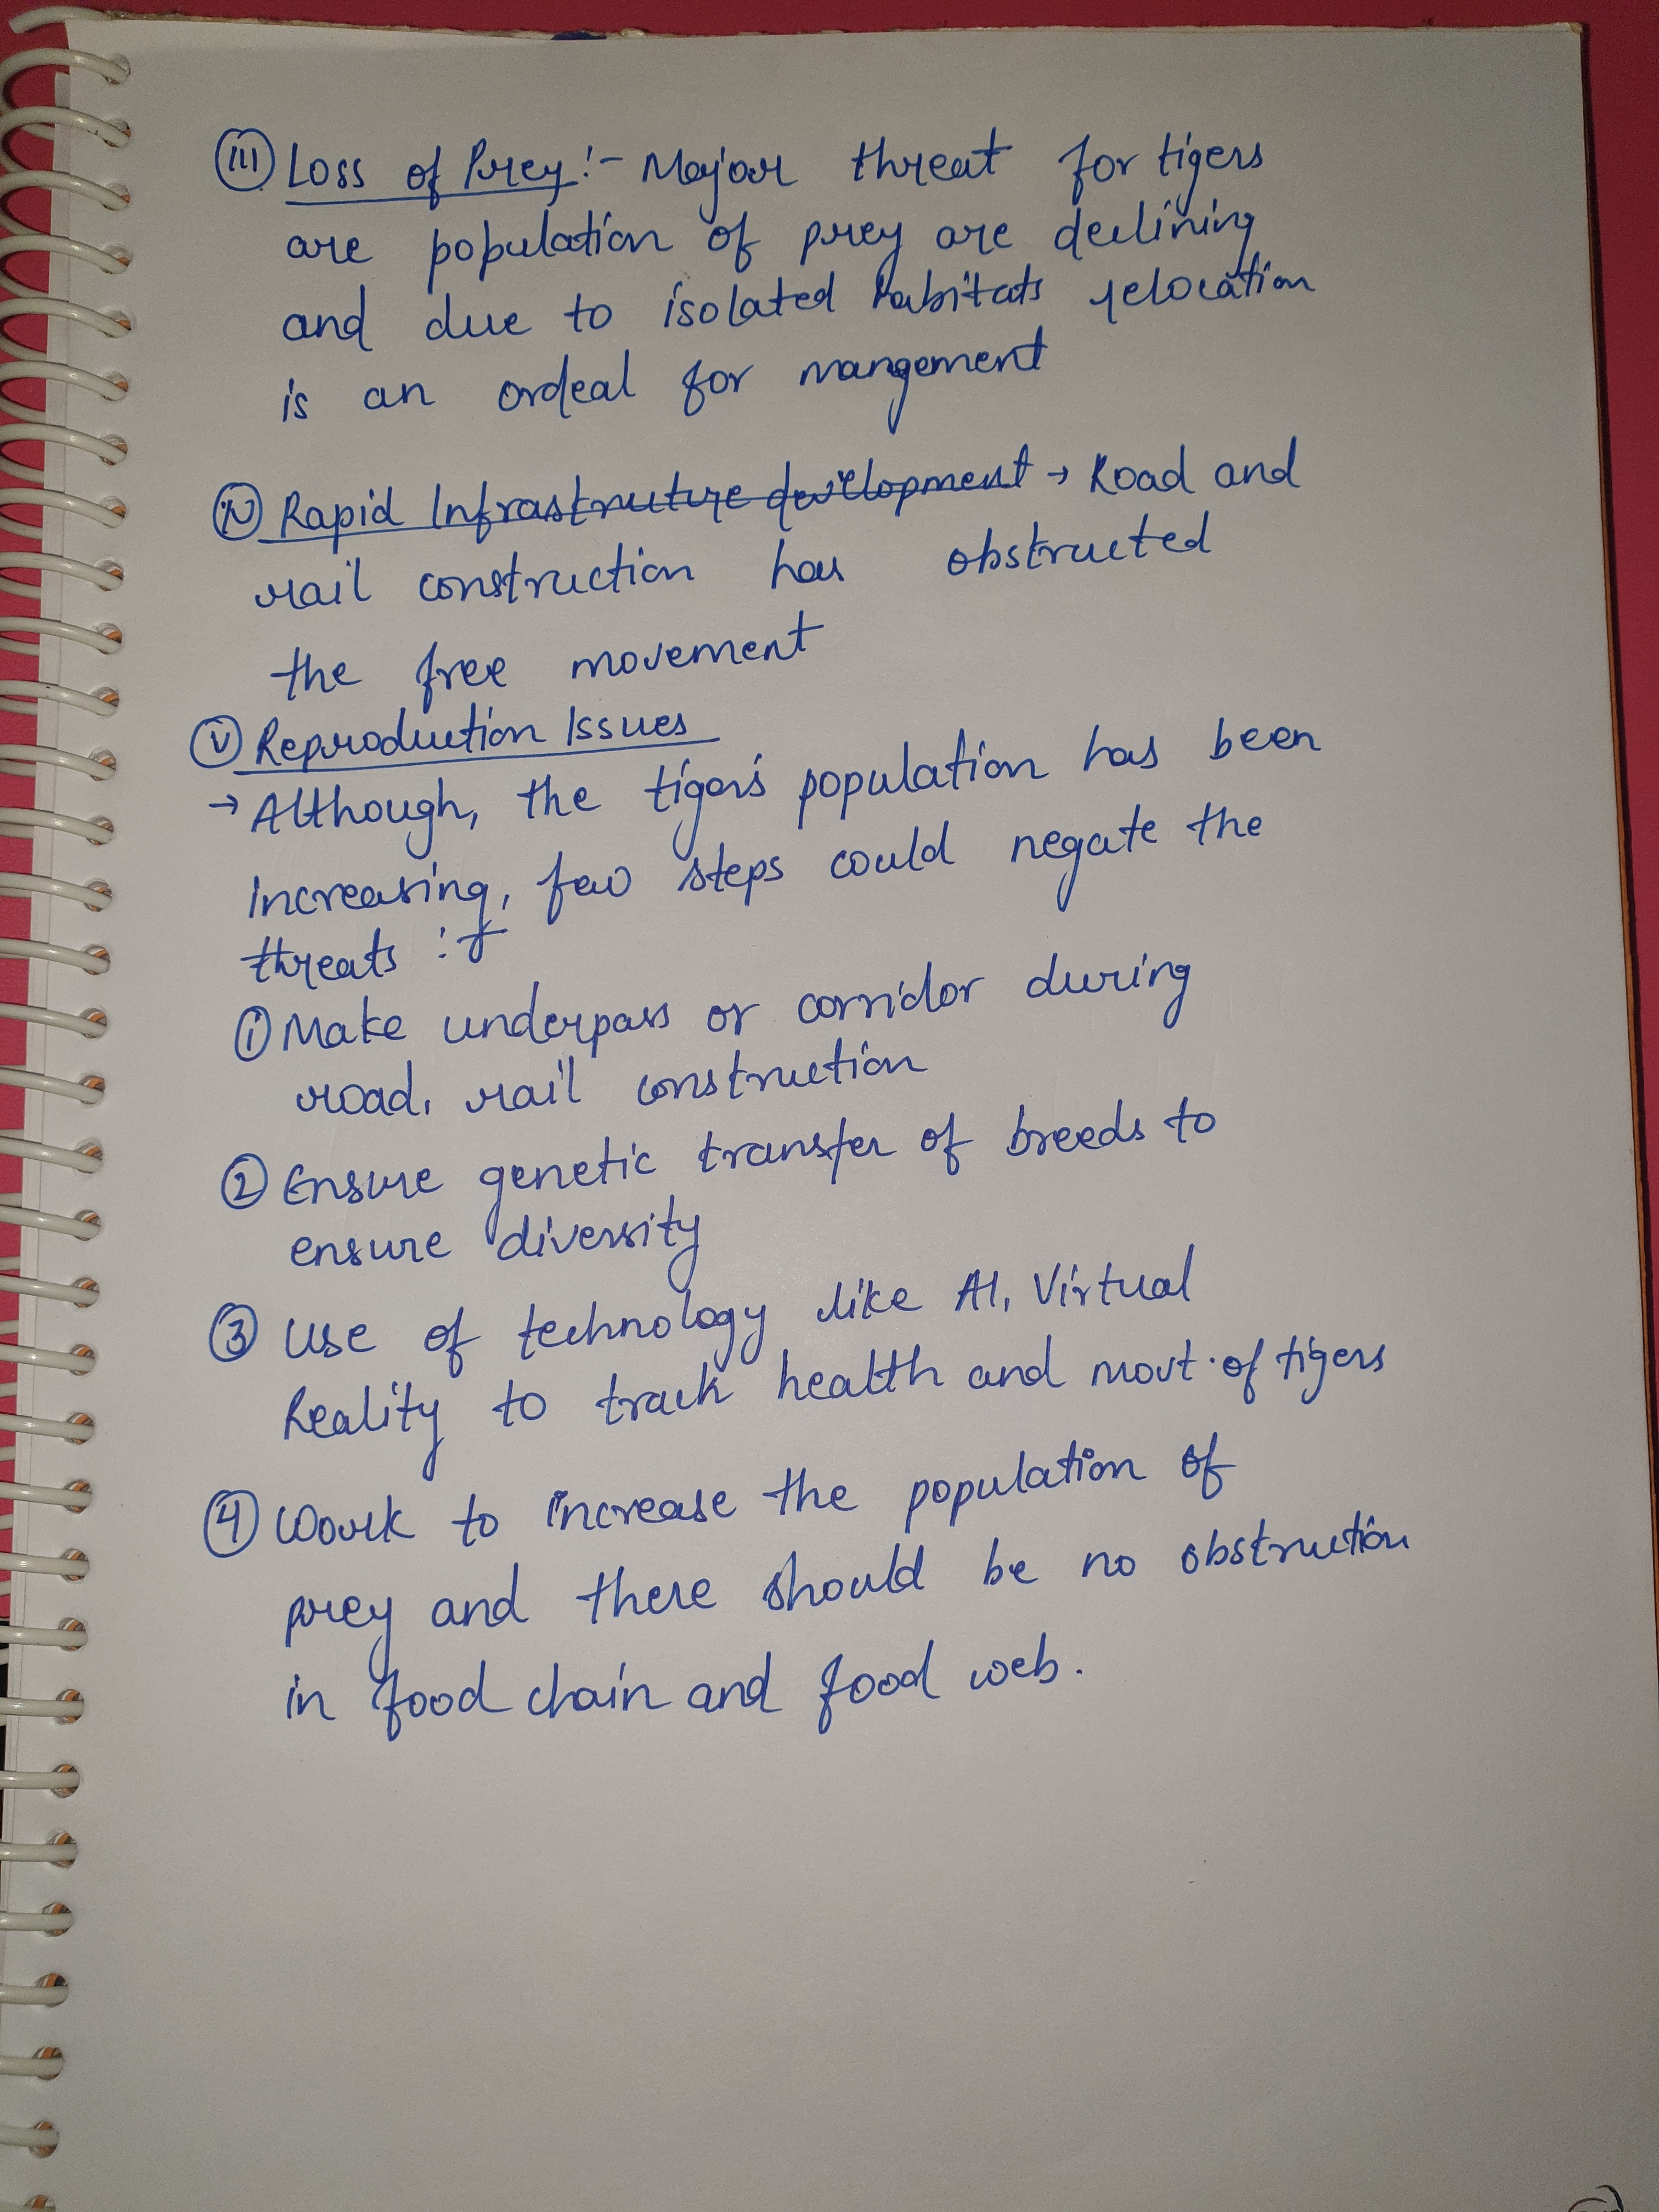 (III) Loss of Prey :- Major threat for tigers
are population of prey are declining
and due to isolated habitats relocation
is an ordeal for mangement
(IV) Rapid Infrastructure development → Road and
rail construction has obstructed
the free movement
(V) Reproduction Issues
→ Although, the tiger's population has been
increasing, few steps could negate the
threats :-
(1) Make underpass or corridor during
road, rail construction
(2) Ensure genetic transfer of breeds to
ensure diversity
(3) Use of technology like AI, Virtual
Reality to track health and movt. of tigers
(4) Work to increase the population of
prey and there should be no obstruction
in food chain and food web.